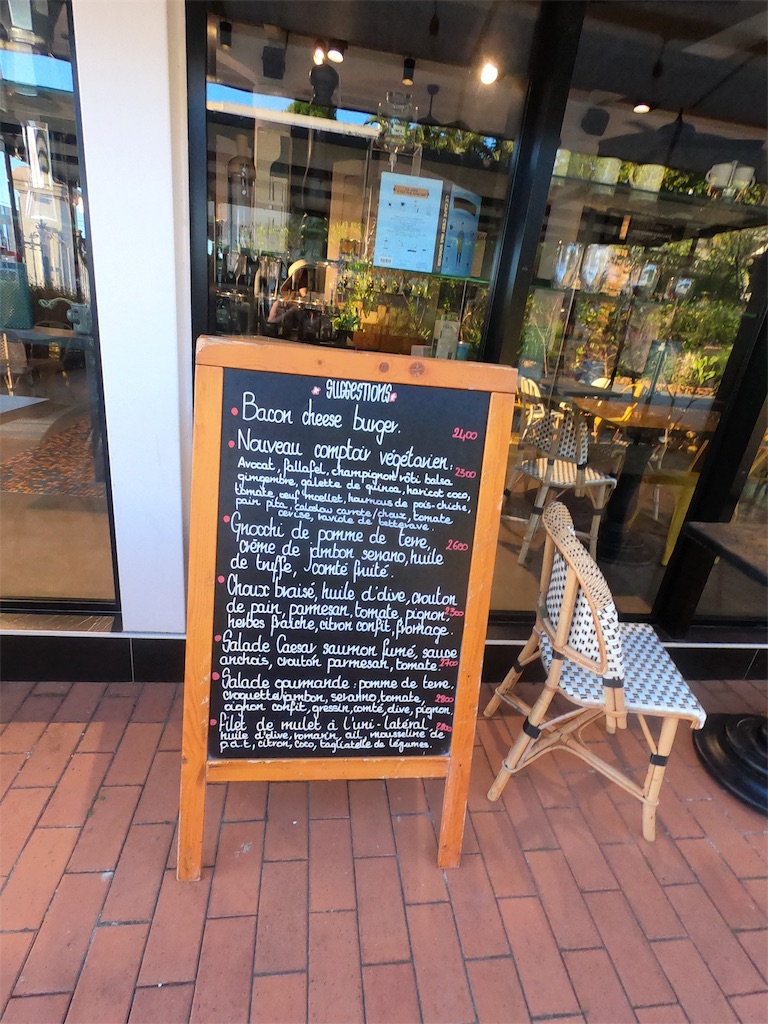 SUGGESTIONS
Bacon cheese burger.
24,00
Nouveau comptoir végétarien :
Avocat, fallafel, champignon rôti balsa
2300
gimgembre, galette de quinoa, haricot coco,
tomate, oeuf mollet, houmous de pois-chiche,
pain pita, coleslow carrote/choux, tomate
cerise, raviole de betterave.
Gnocchi de pomme de terre,
crème de jambon serrano, huile
2600
de truffe, comté fruité.
Choux braisé, huile d'olive, crouton
de pain, parmesan, tomate, pignon,
2300
herbes fraîche, citron confit, fromage.
Salade Caesar saumon fumé, sauce
anchois, crouton parmesan, tomate
2700
Salade gourmande : pomme de terre,
croquette jambon, serrano, tomate,
2800
oignon confit, gressin, comté, olive, pignon.
Filet de mulet à l'uni-latéral,
huile d'olive, romarin, ail, mousseline de
p.d.t, citron, coco, tagliatelle de légumes.